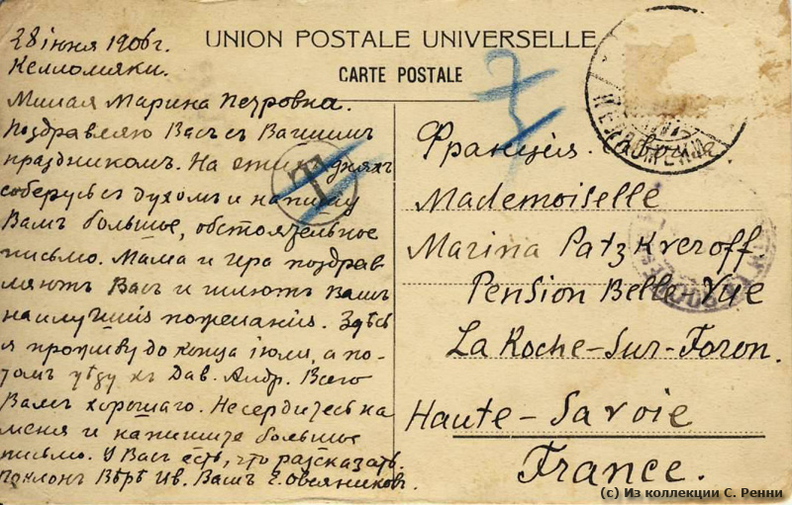 28 іюня 1906 г.
Келломяки.
Милая Марина Петровна.
Поздравляю Васъ съ Вашимъ
праздникомъ. На этихъ дняхъ
соберусь съ духомъ и напишу
Вамъ большое, обстоятельное
письмо. Мама и Ира поздрав
ляютъ Васъ и шлютъ Вамъ
наилучшія пожеланія. Здѣсь
я проживу до конца іюля, а по-
томъ уѣду къ Дав. Андр. Всего
Вамъ хорошаго. Не сердитесь на
меня и напишите большое
письмо. У Васъ есть, что разсказать.
Поклонъ Вѣрѣ Ив. Вашъ Е. Овсяниковъ.
UNION POSTALE UNIVERSELLE
CARTE POSTALE
T
Франція.
Mademoiselle
Marina Patzkveroff.
Pension Belle-Vue
La Roche-Sur-Foron.
Haute-Savoie
France.
(c) Из коллекции С. Ренни